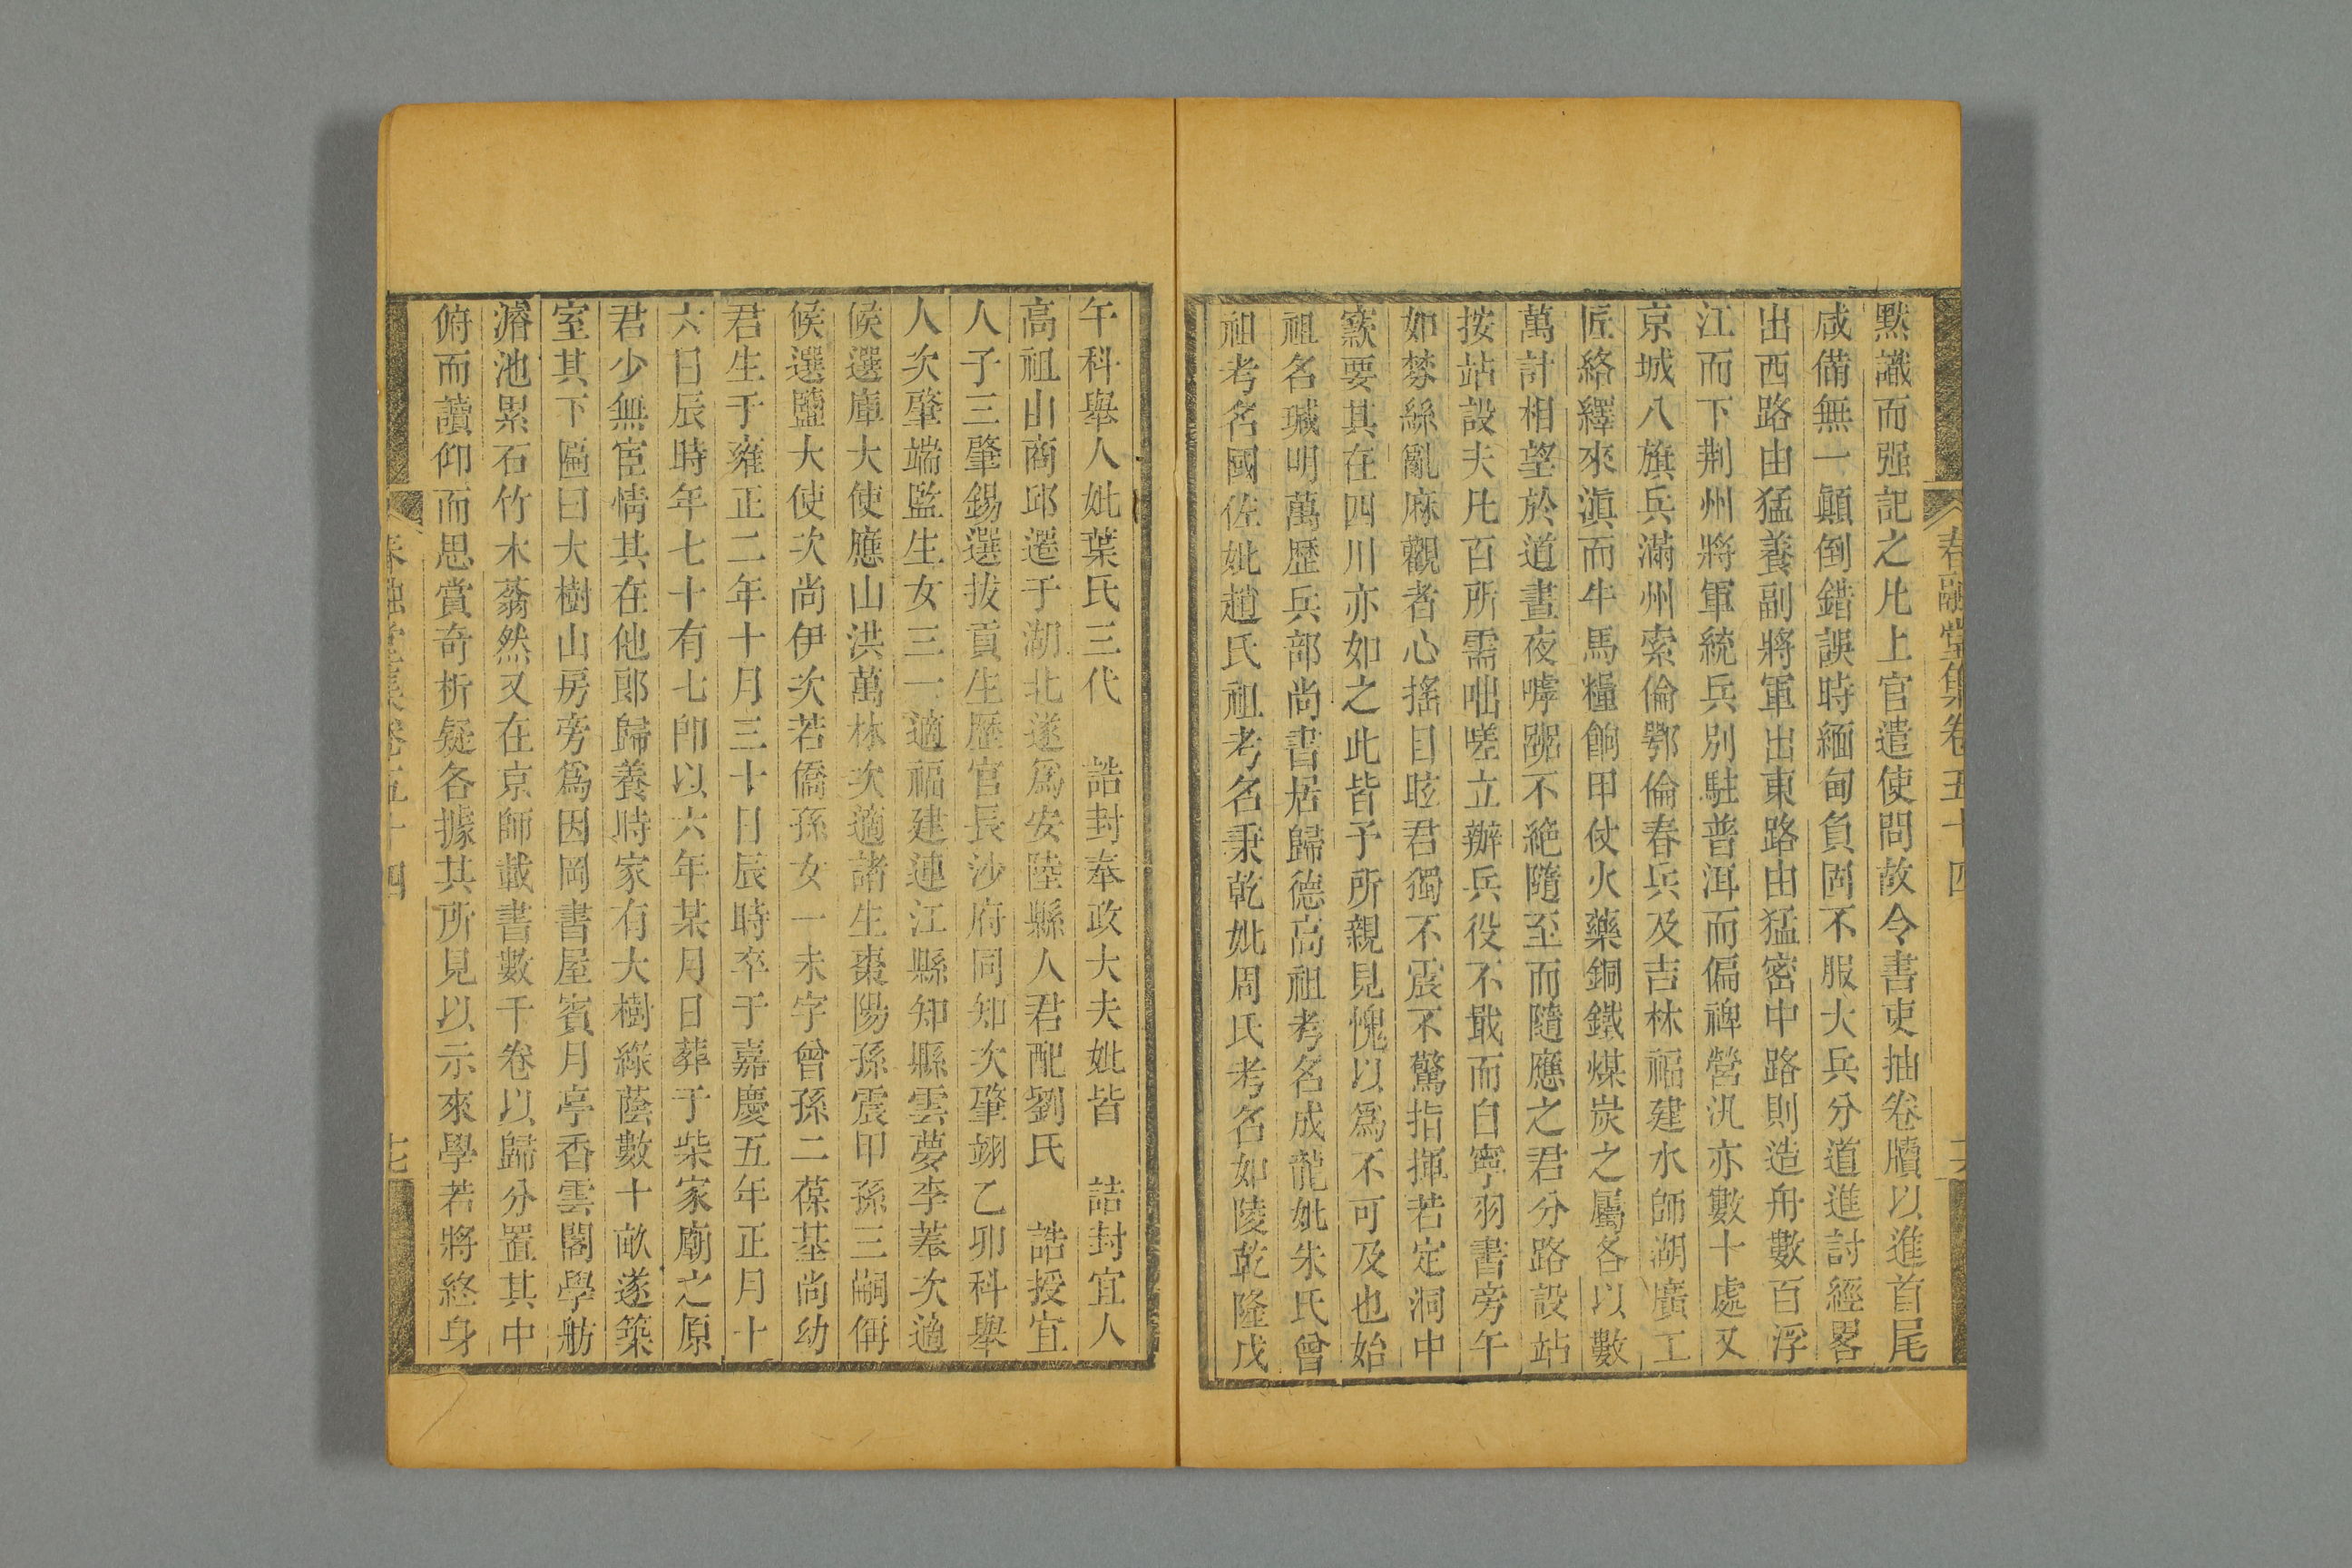 春融堂集卷五十四
默識而强記之凡上官遣使問故令書吏抽卷牘以進首尾
咸備無一顚倒錯誤時緬甸負固不服大兵分道進討經畧
出西路由猛養副將軍出東路由猛密中路則造舟數百浮
江而下荆州將軍統兵別駐普洱而偏裨營汛亦數十處又
京城八旗兵滿州索倫鄂倫春兵及吉林福建水師湖廣工
匠絡繹來滇而牛馬糧餉甲仗火藥銅鐵煤炭之屬各以數
萬計相望於道晝夜嘑踞不絶隨至而隨應之君分路設站
按站設夫凡百所需咄嗟立辦兵役不戢而自寧羽書旁午
如棼絲亂麻觀者心搖目眩君獨不震不驚指揮若定洞中
窾要其在四川亦如之此皆予所親見愧以爲不可及也始
祖名瑊明萬歷兵部尚書居歸德高祖考名成龍妣朱氏曾
祖考名國佐妣趙氏祖考名秉乾妣周氏考名如陵乾隆戊
午科舉人妣葉氏三代　誥封奉政大夫妣皆　誥封宜人
高祖由商邱遷于湖北遂爲安陸縣人君配劉氏　誥授宜
人子三肇錫選拔貢生歷官長沙府同知次肇翊乙卯科舉
人次肇端監生女三一適福建連江縣知縣雲夢李菤次適
候選庫大使應山洪萬林次適諸生棗陽孫震甲孫三嗣偁
候選鹽大使次尚伊次若僑孫女一未字曾孫二葆基尚幼
君生于雍正二年十月三十日辰時卒于嘉慶五年正月十
六日辰時年七十有七卽以六年某月日葬于柴家廟之原
君少無宦情其在他郎歸養時家有大樹綠蔭數十畝遂築
室其下匾曰大樹山房旁爲因岡書屋賓月亭香雲閣學舫
濬池累石竹木蓊然又在京師載書數千卷以歸分置其中
俯而讀仰而思賞奇析疑各據其所見以示來學若將終身
春融堂集卷五十四　七